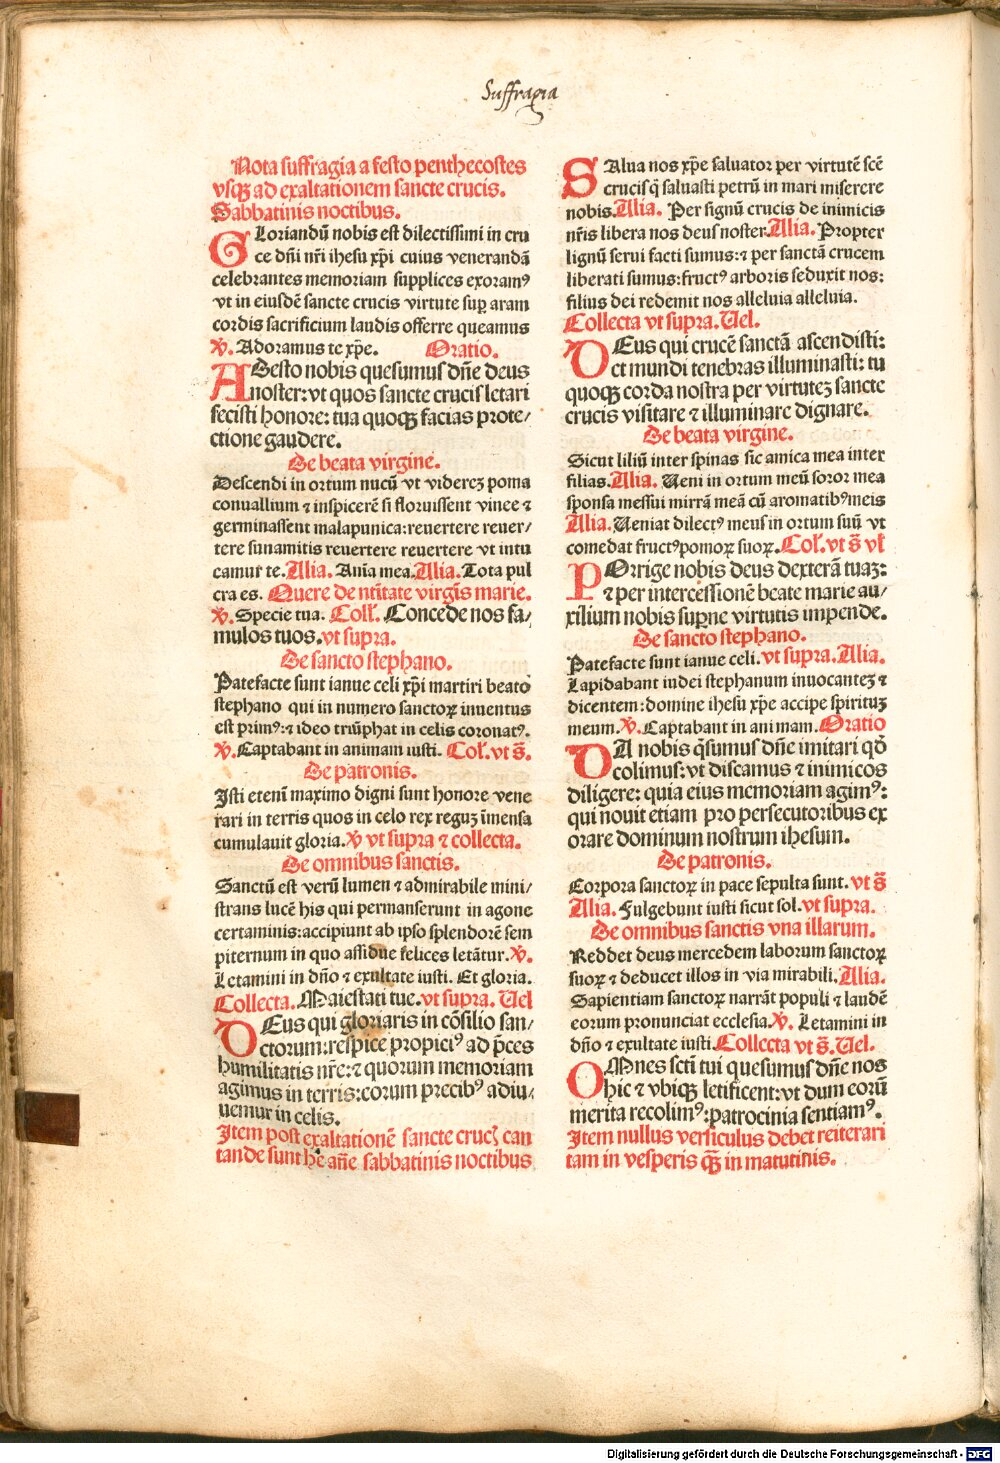 Suffragia
Nota suffragia a festo penthecostes
vsqꝫ ad exaltationem sancte crucis.
Sabbatinis noctibus.
GLoriandū nobis est dilectissimi in cru
ce dn̄i nr̄i ihesu xp̄i cuius venerandā
celebrantes memoriam supplices exoramꝰ
vt in eiusdē sancte crucis virtute suꝑ aram
cordis sacrificium laudis offerre queamus
℣. Adoramus te xp̄e. Oratio.
ADesto nobis quesumus dn̄e deus
noster: vt quos sancte crucis letari
fecisti honore: tua quoqꝫ facias prote/
ctione gaudere.
De beata virgine.
Descendi in ortum nucū vt videreꝫ poma
conuallium ⁊ inspicerē si floruissent vinee ⁊
germinassent malapunica: reuertere reuer/
tere sunamitis reuertere reuertere vt intu
eamur te. Alia. Anīa mea. Alia. Tota pul
cra es. Quere de nt̄itate virgīs marie.
℣. Specie tua. Coll̄. Concede nos fa/
mulos tuos. vt supra.
De sancto stephano.
Patefacte sunt ianue celi xp̄i martiri beato
stephano qui in numero sanctoꝝ inuentus
est primꝰ: ⁊ ideo triūphat in celis coronatꝰ.
℣. Captabant in animam iusti. Col̄. vt s̄.
De patronis.
Isti etenī maximo digni sunt honore vene
rari in terris quos in celo rex reguꝫ īmensa
cumulauit gloria. ℣ vt supra ⁊ collecta.
De omnibus sanctis.
Sanctū est verū lumen ⁊ admirabile mini/
strans lucē his qui permanserunt in agone
certaminis: accipiunt ab ipso splendorē sem
piternum in quo assidue felices letātur. ℣.
Letamini in dn̄o ⁊ exultate iusti. Et gloria.
Collecta. Maiestati tue. vt supra. Uel
DEus qui gloriaris in cōsilio san/
ctorum: respice propiciꝰ ad p̄ces
humilitatis nr̄e: ⁊ quorum memoriam
agimus in terris: eorum precibꝰ adiu/
uemur in celis.
Item post exaltationē sancte cruc̄ can
tande sunt he an̄e sabbatinis noctibus
SAlua nos xp̄e saluator per virtutē sc̄e
crucis q̄ saluasti petrū in mari miserere
nobis. Alia. Per signū crucis de inimicis
nr̄is libera nos deus noster. Alia. Propter
lignū serui facti sumus: ⁊ per sanctā crucem
liberati sumus: fructꝰ arboris seduxit nos:
filius dei redemit nos alleluia alleluia.
Collecta vt supra. Uel.
DEus qui crucē sanctā ascendisti:
et mundi tenebras illuminasti: tu
quoqꝫ corda nostra per virtuteꝫ sancte
crucis visitare ⁊ illuminare dignare.
De beata virgine.
Sicut liliū inter spinas sic amica mea inter
filias. Alia. Ueni in ortum meū soror mea
sponsa messui mirrā meā cū aromatibꝰ meis
Alia. Ueniat dilectꝰ meus in ortum suū vt
comedat fructꝰ pomoꝝ suoꝝ. Col̄. vt s̄ vl̄
POrrige nobis deus dexterā tuaꝫ:
⁊ per intercessionē beate marie au/
xilium nobis suꝑne virtutis impende.
De sancto stephano.
Patefacte sunt ianue celi. vt supra. Alia.
Lapidabant iudei stephanum inuocanteꝫ ⁊
dicentem: domine ihesu xp̄e accipe spirituꝫ
meum. ℣. Captabant in animam. Oratio
DA nobis q̄sumus dn̄e imitari qd̄
colimus: vt discamus ⁊ inimicos
diligere: quia eius memoriam agimꝰ:
qui nouit etiam pro persecutoribus ex
orare dominum nostrum ihesum.
De patronis.
Corpora sanctoꝝ in pace sepulta sunt. vt s̄
Alia. Fulgebunt iusti sicut sol. vt supra.
De omnibus sanctis vna illarum.
Reddet deus mercedem laborum sanctoꝝ
suoꝝ ⁊ deducet illos in via mirabili. Alia.
Sapientiam sanctoꝝ narrāt populi ⁊ laudē
eorum pronunciat ecclesia. ℣. Letamini in
dn̄o ⁊ exultate iusti. Collecta vt s̄. Uel.
OMnes sc̄ti tui quesumus dn̄e nos
hic ⁊ vbiqꝫ letificent: vt dum eorū
merita recolimꝰ: patrocinia sentiamꝰ.
Item nullus versiculus debet reiterari
tam in vesperis qꝫ̄ in matutinis.
Digitalisierung gefördert durch die Deutsche Forschungsgemeinschaft - DFG